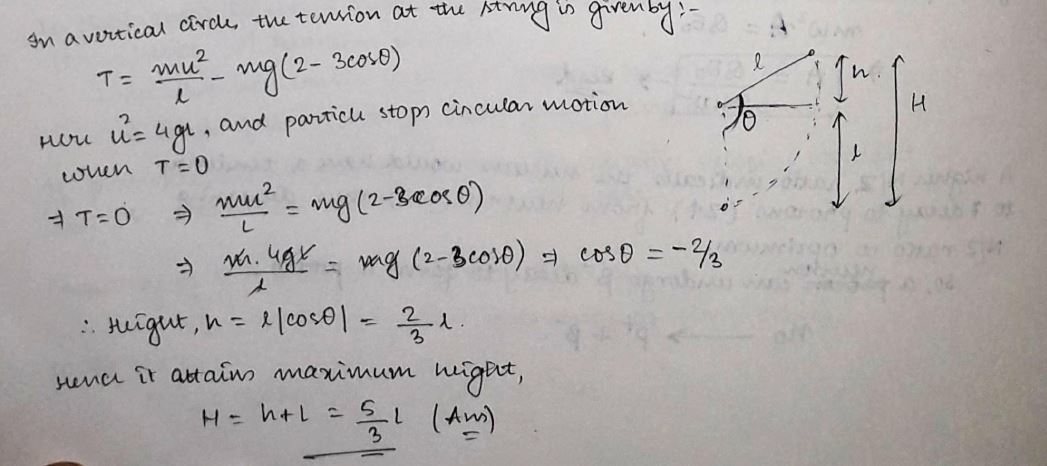 In a vertical circle, the tension at the string is given by:-
T = mu²/l - mg(2 - 3cosθ)
Here u² = 4gl, and particle stops circular motion
when T=0
⇒ T=0 ⇒ mu²/L = mg(2-3cosθ)
⇒ m.4gl/l = mg (2-3cosθ) ⇒ cosθ = -2/3
∴ Height, h = l|cosθ| = 2/3 l.
Hence it attains maximum height,
H = h+L = 5/3 l (Ans)
l
h
H
θ
l